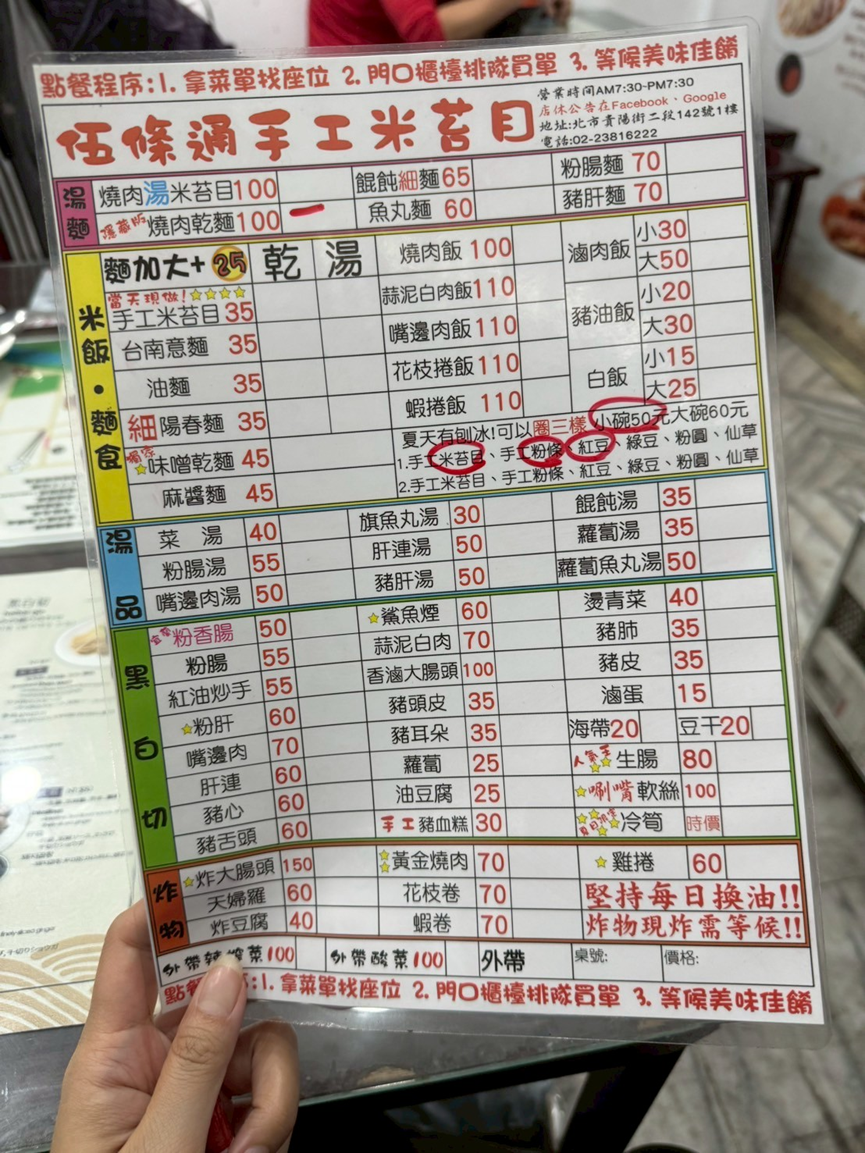 點餐程序:1. 拿菜單找座位 2. 門口櫃檯排隊買單 3. 等候美味佳餚
伍條通手工米苔目
營業時間AM7:30-PM7:30
店休公告在Facebook、Google
地址:北市貴陽街二段142號1樓
電話:02-23816222
湯麵
燒肉湯米苔目100 餛飩細麵65 粉腸麵 70
隱藏版 燒肉乾麵100 魚丸麵 60 豬肝麵 70
米飯・麵食
麵加大+25 乾 湯
當天現做!
手工米苔目35
台南意麵 35
油麵 35
細陽春麵 35
獨家 味噌乾麵 45
麻醬麵 45
燒肉飯 100
蒜泥白肉飯110
嘴邊肉飯 110
花枝捲飯 110
蝦捲飯 110
滷肉飯 小30 大50
豬油飯 小20 大30
白飯 小15 大25
夏天有刨冰!可以圈三樣 小碗50元大碗60元
1.手工米苔目、手工粉條、紅豆、綠豆、粉圓、仙草
2.手工米苔目、手工粉條、紅豆、綠豆、粉圓、仙草
湯品
菜 湯 40 旗魚丸湯 30 餛飩湯 35
粉腸湯 55 肝連湯 50 蘿蔔湯 35
嘴邊肉湯 50 豬肝湯 50 蘿蔔魚丸湯 50
黑白切
粉香腸 50 鯊魚煙 60 燙青菜 40
粉腸 55 蒜泥白肉 70 豬肺 35
紅油炒手 55 香滷大腸頭 100 豬皮 35
粉肝 60 豬頭皮 35 滷蛋 15
嘴邊肉 70 豬耳朵 35 海帶20 豆干20
肝連 60 蘿蔔 25 人氣王 生腸 80
豬心 60 油豆腐 25 唰嘴軟絲 100
豬舌頭 60 手工豬血糕 30 夏日限定 冷筍 時價
炸物
炸大腸頭 150 黃金燒肉 70 雞捲 60
天婦羅 60 花枝卷 70 堅持每日換油!!
炸豆腐 40 蝦卷 70 炸物現炸需等候!!
外帶辣 菜100 外帶酸菜100 外帶 桌號: 價格:
點餐程序:1. 拿菜單找座位 2. 門口櫃檯排隊買單 3. 等候美味佳餚